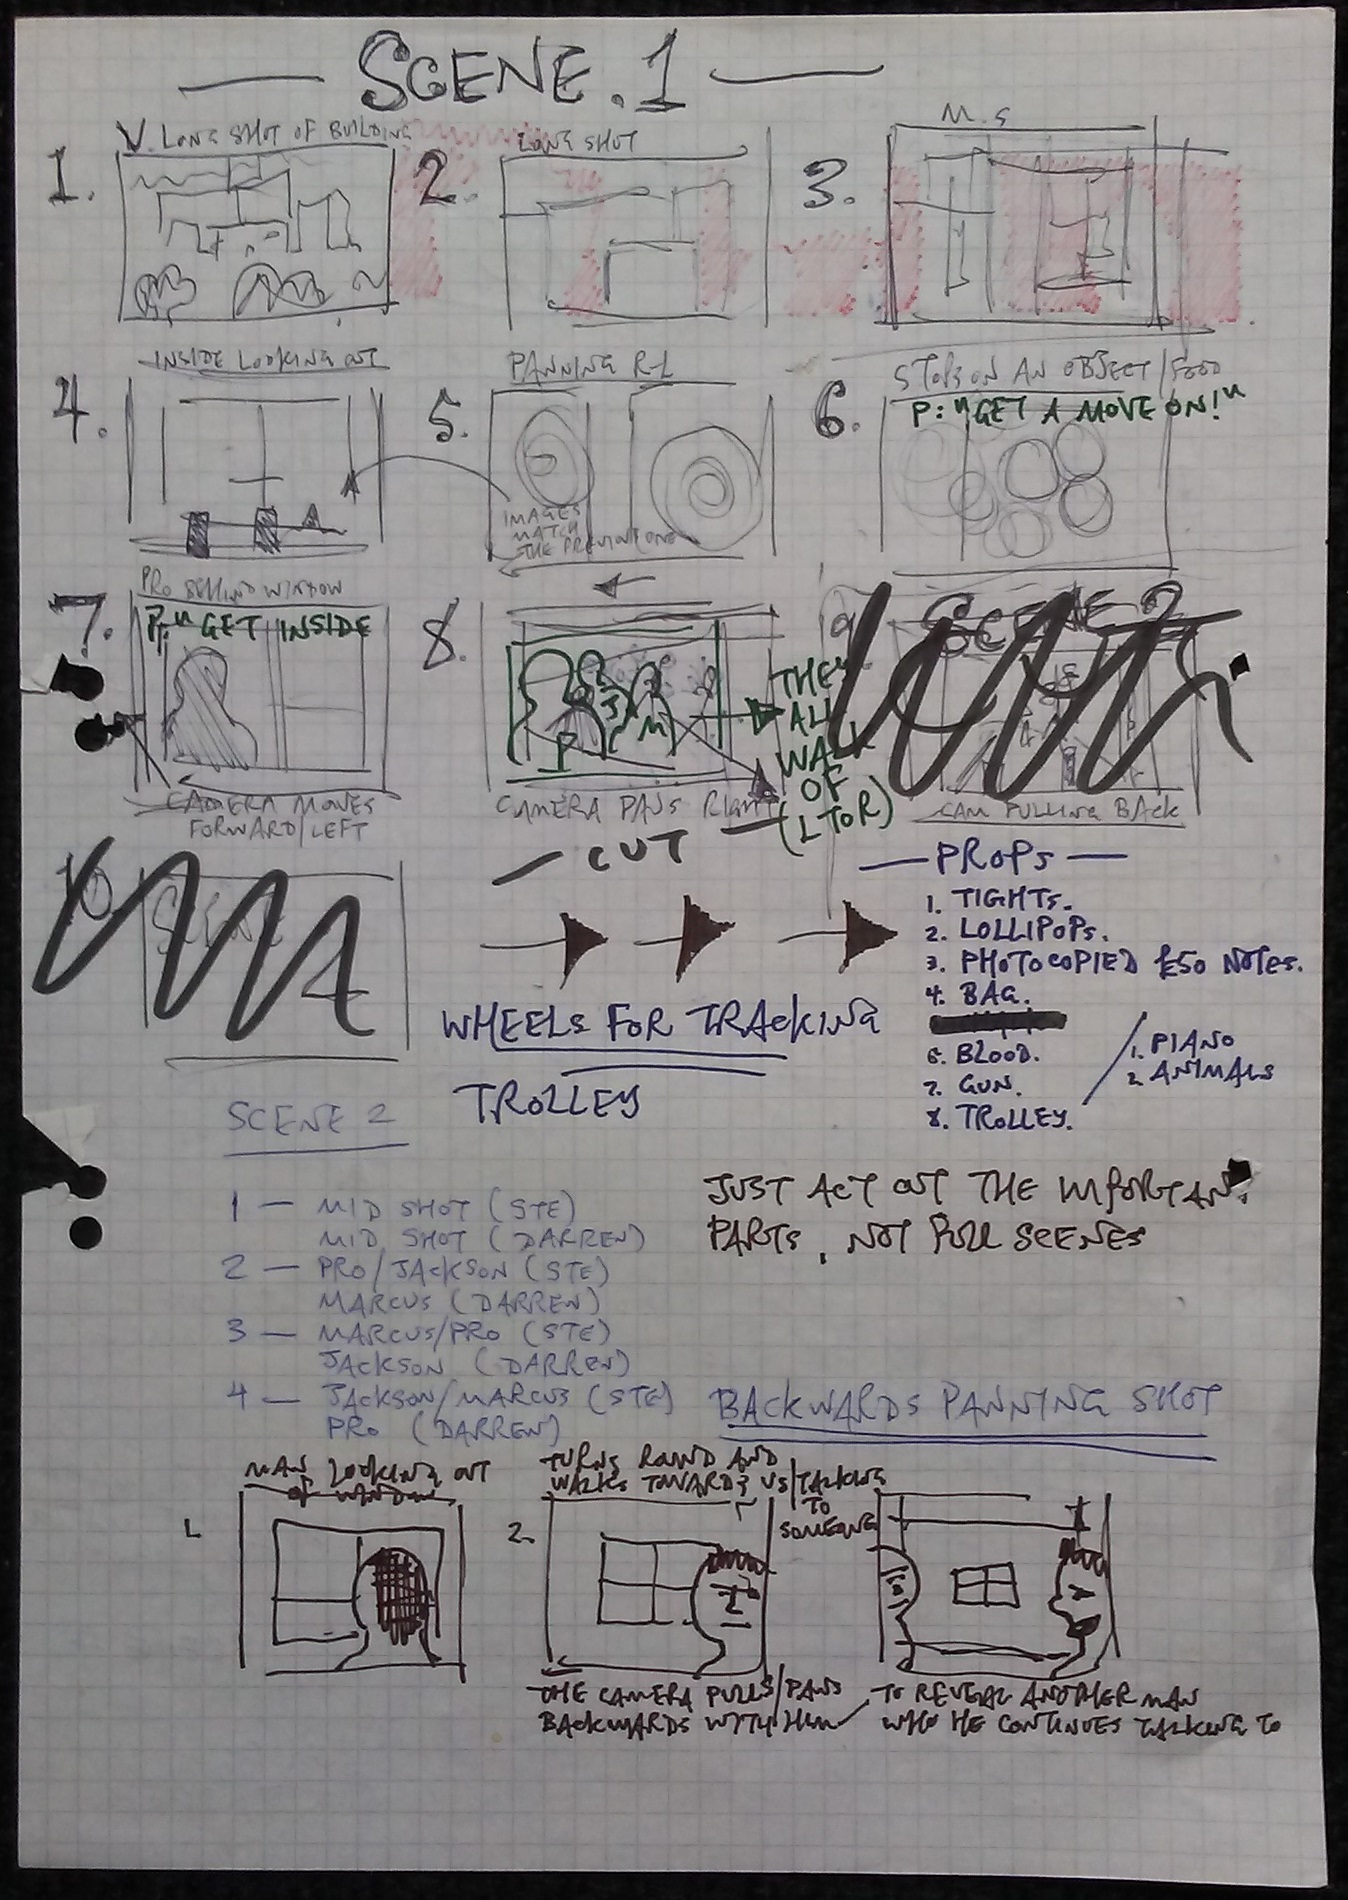 SCENE.1
1.
V. LONG SHOT OF BUILDING
2.
LONG SHOT
3.
M.S
4.
INSIDE LOOKING OUT
5.
PANNING R-L
IMAGES
MATCH
THE PREVIOUS ONE
6.
STOPS ON AN OBJECT/FOOD
P: "GET A MOVE ON!"
7.
PRO BEHIND WINDOW
P: "GET INSIDE
CAMERA MOVES
FORWARD/LEFT
8.
P
J
M
THEY
ALL
WALK
OF
(L TO R)
CAMERA PANS RIGHT
9
SCENE 2
CAM PULLING BACK
— CUT —
10
SCENE
— PROPS —
1. TIGHTS.
2. LOLLIPOPS.
3. PHOTOCOPIED £50 NOTES.
4. BAG.
6. BLOOD.
7. GUN.
8. TROLLEY.
1. PIANO
2. ANIMALS
WHEELS FOR TRACKING
TROLLEY
SCENE 2
1 — MID SHOT (STE)
MID SHOT (DARREN)
2 — PRO/JACKSON (STE)
MARCUS (DARREN)
3 — MARCUS/PRO (STE)
JACKSON (DARREN)
4 — JACKSON/MARCUS (STE)
PRO (DARREN)
JUST ACT OUT THE IMPORTANT
PARTS, NOT FULL SCENES
BACKWARDS PANNING SHOT
1.
MAN LOOKING OUT
OF WINDOW
2.
TURNS ROUND AND
WALKS TOWARDS US/TALKING
TO
SOMEONE
THE CAMERA PULLS/PANS
BACKWARDS WITH HIM
TO REVEAL ANOTHER MAN
WHO HE CONTINUES TALKING TO